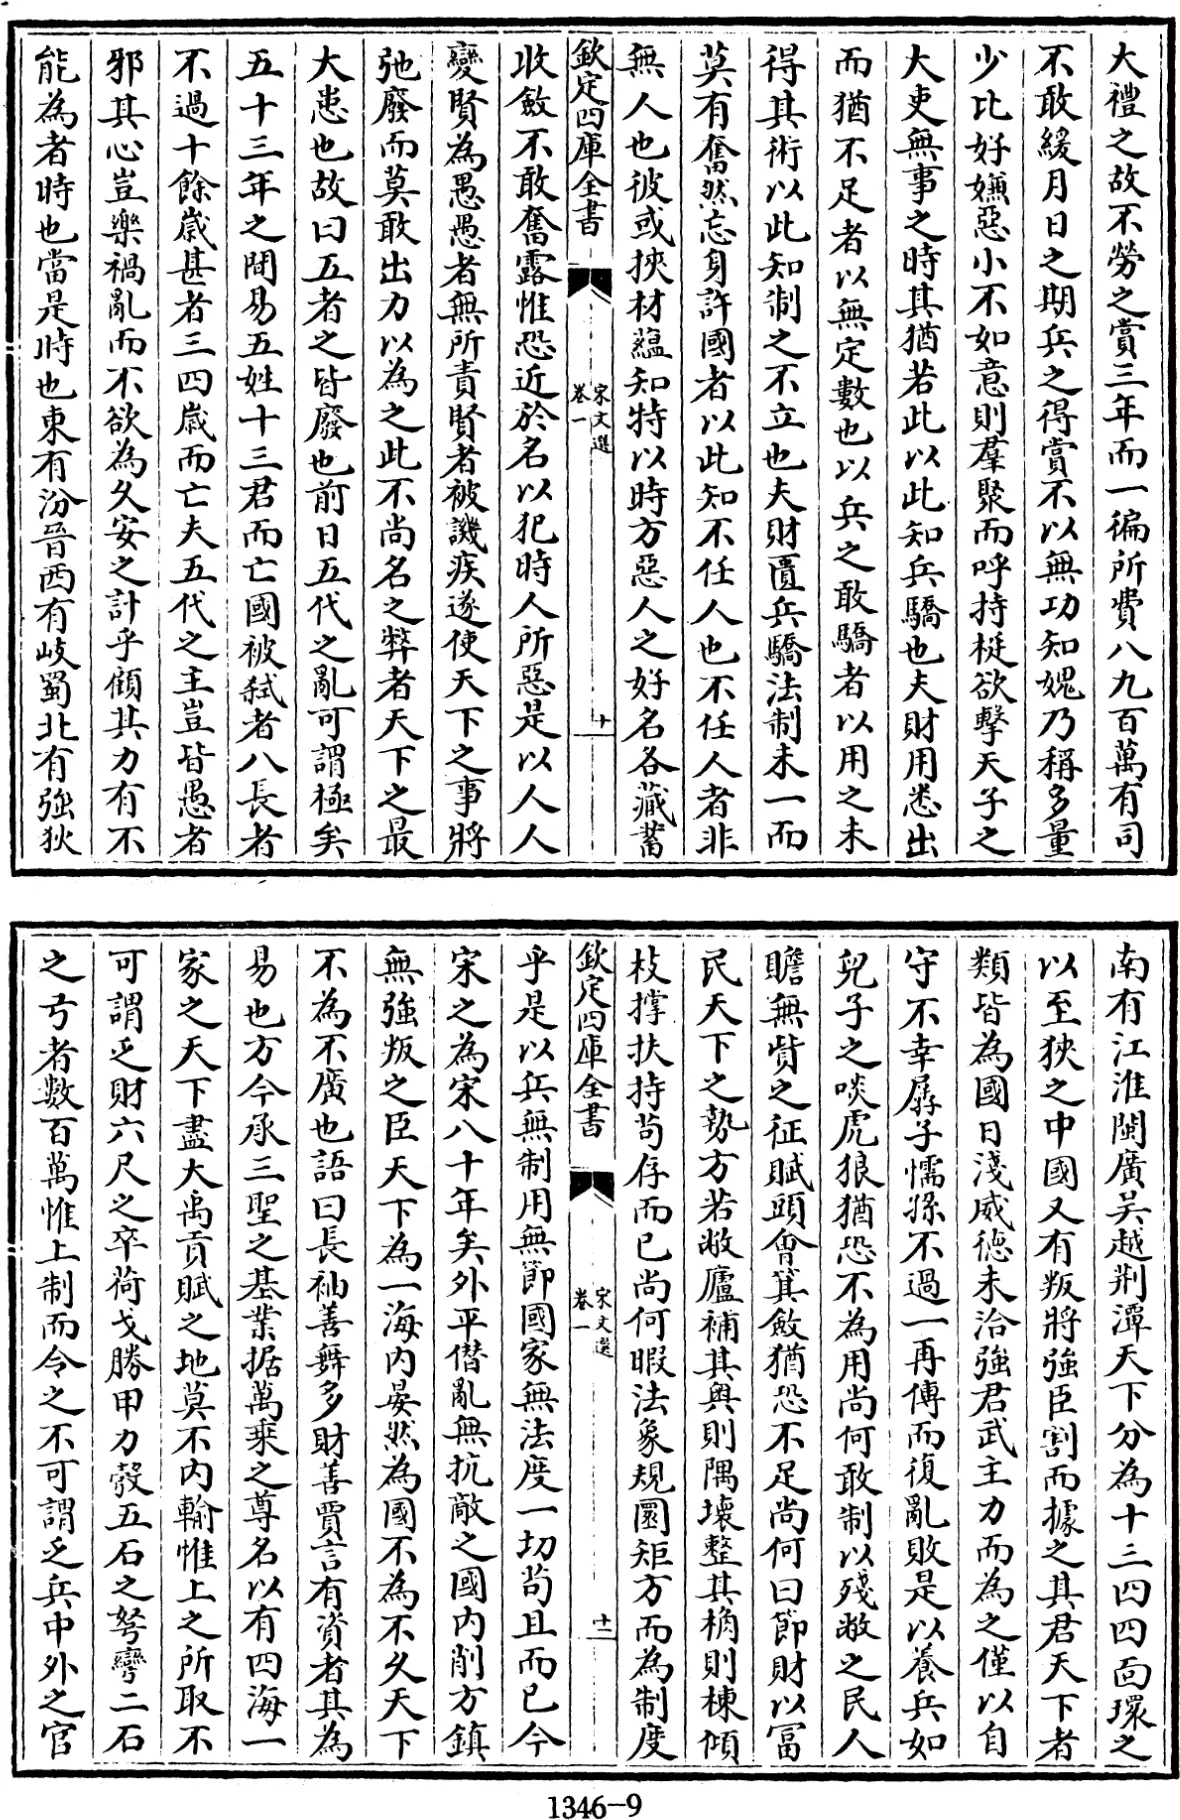 大禮之故不勞之賞三年而一徧所費八九百萬有司
不敢緩月日之期兵之得賞不以無功知媿乃稱多量
少比好嫌惡小不如意則羣聚而呼持梃欲擊天子之
大吏無事之時其猶若此以此知兵驕也夫財用悉出
而猶不足者以無定數也以兵之敢驕者以用之未
得其術以此知制之不立也夫財匱兵驕法制未一而
莫有奮然忘身許國者以此知不任人也不任人者非
無人也彼或挾材蘊知特以時方惡人之好名各藏蓄
欽定四庫全書
宋文選
卷一
十
收斂不敢奮露惟恐近於名以犯時人所惡是以人人
變賢為愚愚者無所責賢者被譏疾遂使天下之事將
弛廢而莫敢出力以為之此不尚名之弊者天下之最
大患也故曰五者之皆廢也前日五代之亂可謂極矣
五十三年之間易五姓十三君而亡國被弒者八長者
不過十餘歲甚者三四歲而亡夫五代之主豈皆愚者
邪其心豈樂禍亂而不欲為久安之計乎顧其力有不
能為者時也當是時也東有汾晉西有岐蜀北有強狄
南有江淮閩廣吳越荆潭天下分為十三四四面環之
以至狹之中國又有叛將強臣割而據之其君天下者
類皆為國日淺威德未洽強君武主力而為之僅以自
守不幸孱子懦孫不過一再傳而復亂敗是以養兵如
兒子之啖虎狼猶恐不為用尚何敢制以殘敝之民人
贍無貲之征賦頭會箕斂猶恐不足尚何曰節財以富
民天下之勢方若敝廬補其奧則隅壞整其桷則棟傾
枝撑扶持苟存而已尚何暇法象規圜矩方而為制度
欽定四庫全書
宋文選
卷一
十一
乎是以兵無制用無節國家無法度一切苟且而已今
宋之為宋八十年矣外平僭亂無抗敵之國內削方鎮
無強叛之臣天下為一海內晏然為國不為不久天下
不為不廣也語曰長袖善舞多財善賈言有資者其為
易也方今承三聖之基業据萬乘之尊名以有四海一
家之天下盡大禹貢賦之地莫不內輸惟上之所取不
可謂乏財六尺之卒荷戈勝甲力彀五石之弩彎二石
之弓者數百萬惟上制而令之不可謂乏兵中外之官
1346-9